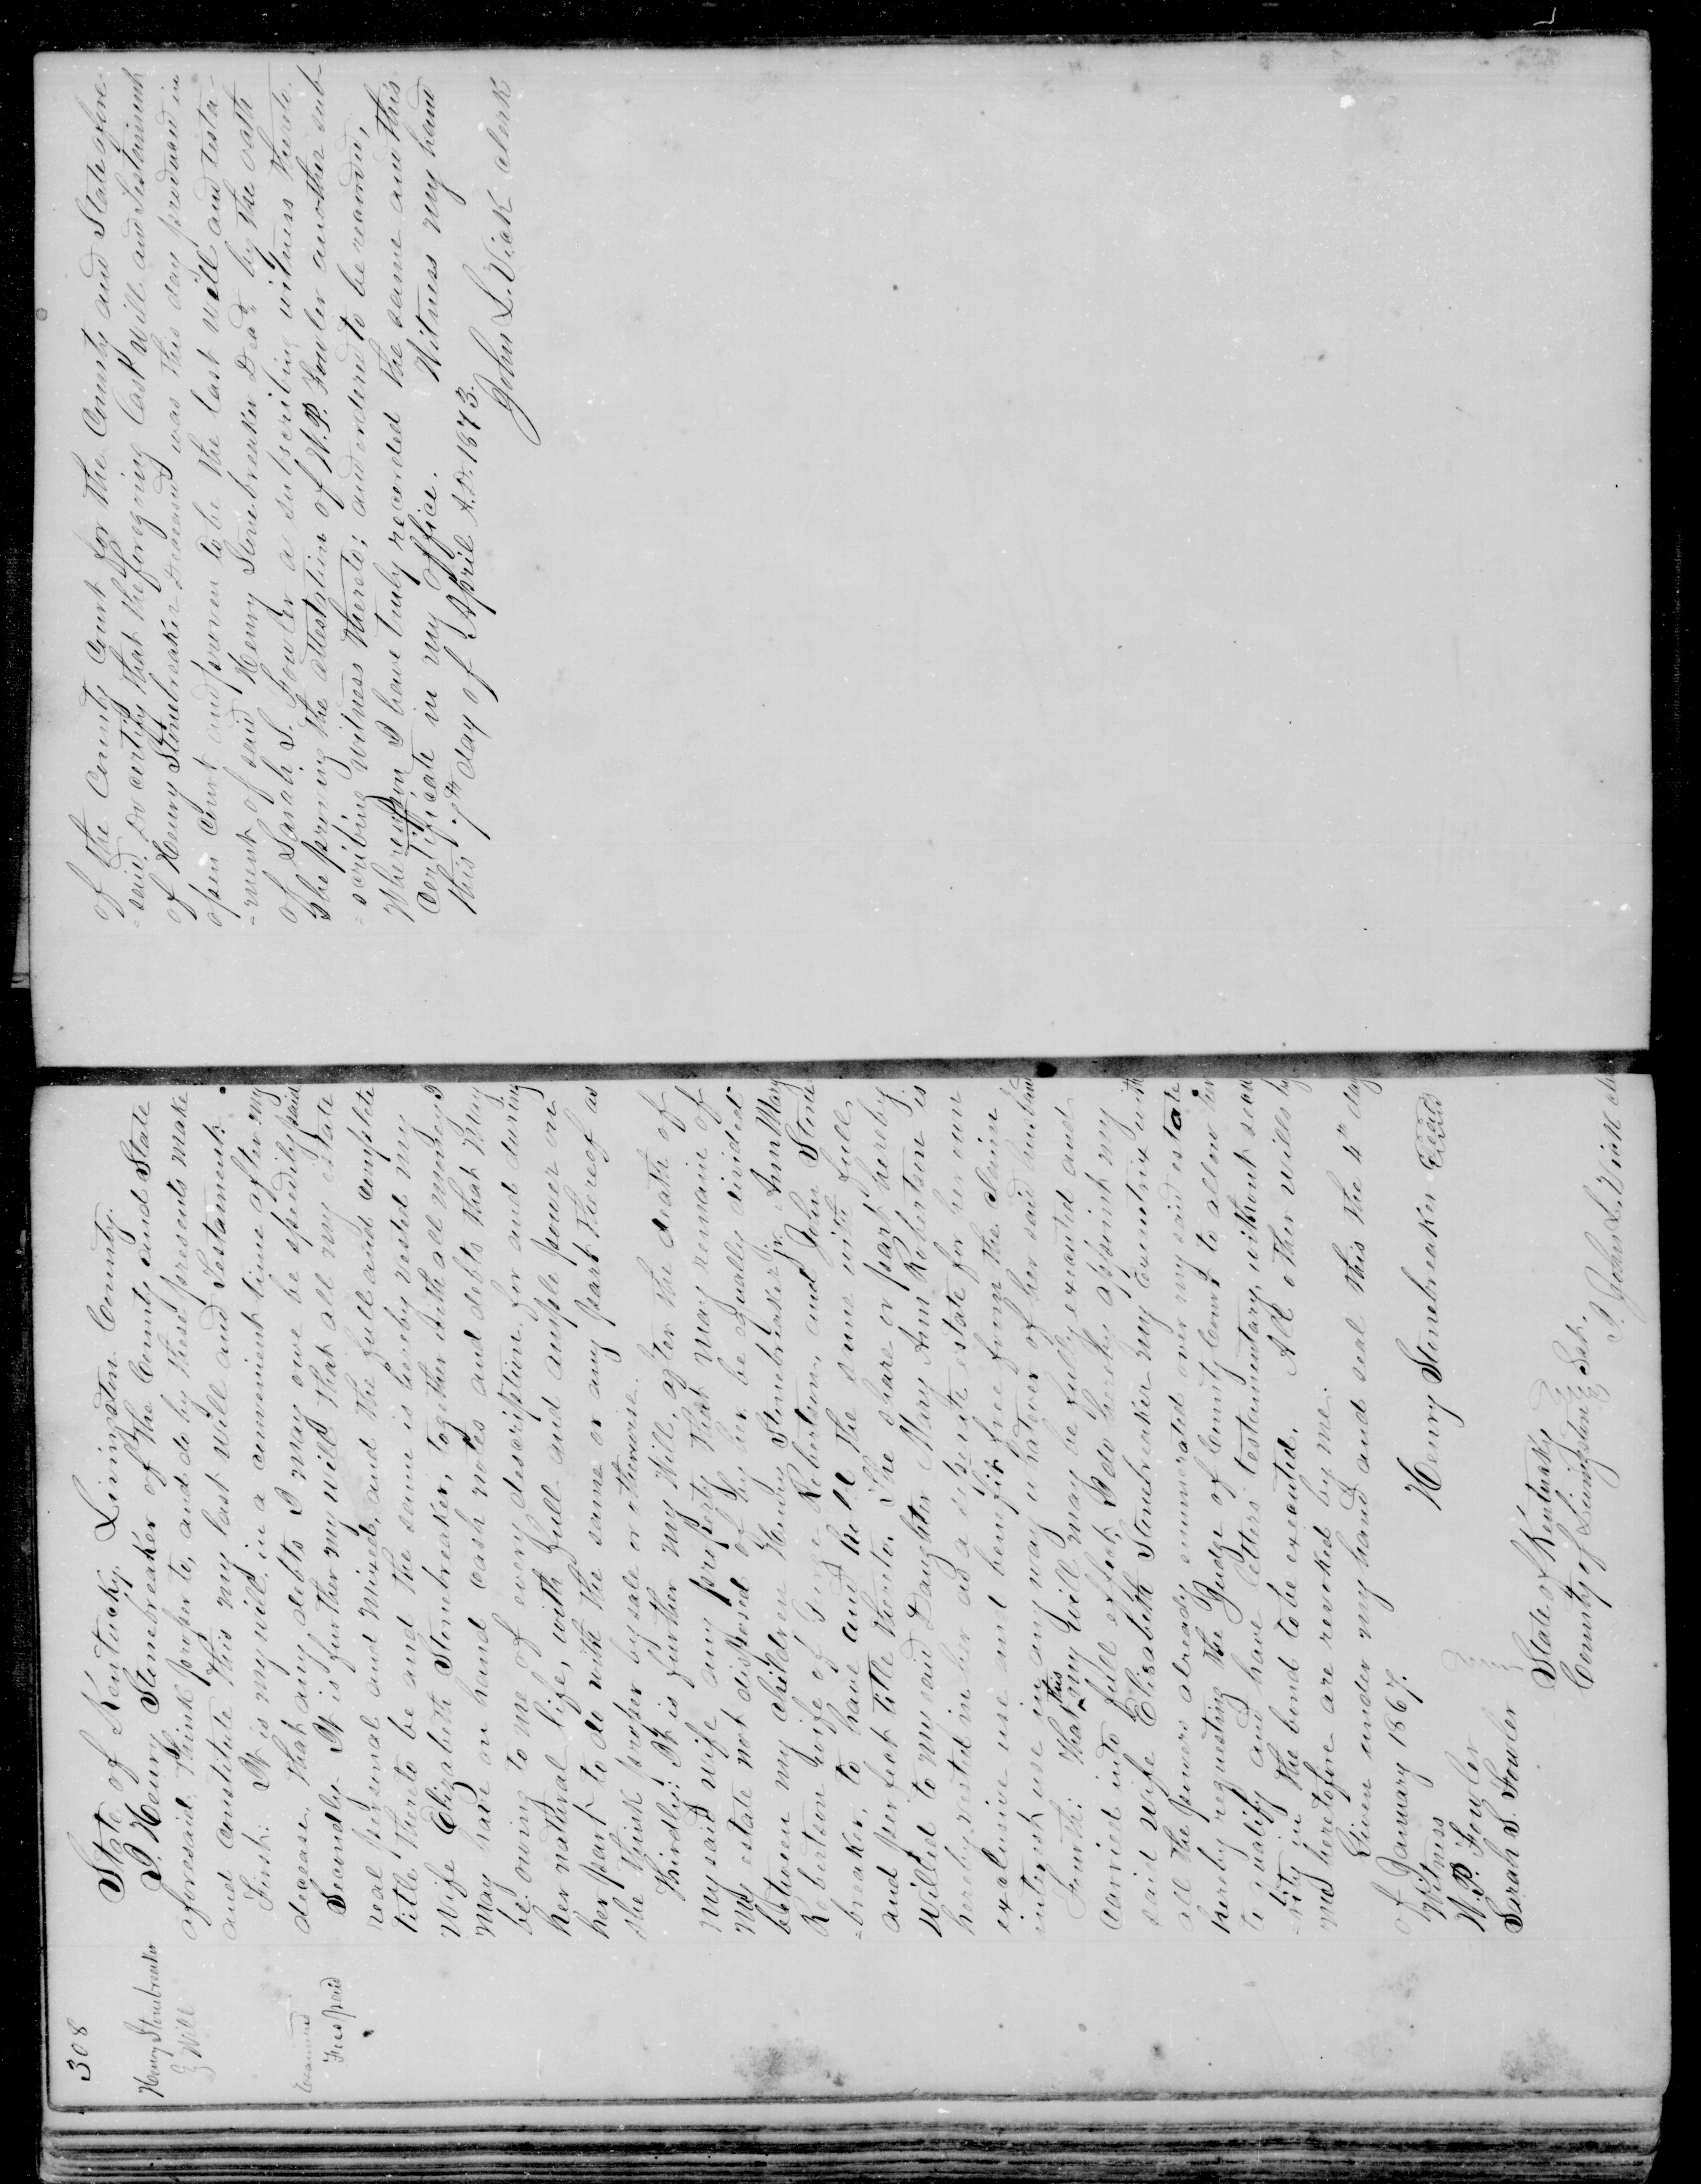 308
Henry Stonebreaker
Will
Examined
Fees paid
State of Kentucky Livingston County.
I Henry Stonebreaker of the County and State
aforesaid, think proper to, and do by these presents make
and constitute this my last will and Testament.
First: It is my will, in a convenient time after my
decease, that any debts I may owe be speedily paid
Secondly It is further my will that all my estate
real personal and mixed, and the full and complete
title thereto be and the same is hereby vested my
Wife Elizabeth Stonebreaker, together with all moneys I
may have on hand cash notes and debts that may
be owing to me of every description, for and during
her natural life, with full and ample power on
her part to do with the same or any part thereof as
she think proper by sale or otherwise.
Thirdly: It is further my Will, after the death of
my said wife any property that may remain of
my estate not disposed of by her be equally divided
between my children Henry Stonebraker jr. Ann Mary
Robertson wife of George Robertson, and John Stone
=breaker, to have and hold the same with full
and perfect title thereto. The share or part hereby
Willed to my said Daughter Mary Ann Robertson is
hereby vested in her as a separate estate for her own
exclusive use and benefit free from the claim
interest use in any way whatever of her said husband
Fourth: That this my will may be fully executed and
carried into full effect, I do hereby appoint my
said wife Elizabeth Stonebreaker my Executrix with
all the powers already enumerated over my said estate
hereby requesting the Judge of County Court to allow her
to qualify and have letters testamentary without secu
-rity in the bond to be executed. All other wills by
me heretofore are revoked by me.
Given under my hand and seal this the 4th day
of January 1867.
Henry Stonebreaker Seal
Witness
W. P. Fowler
Sarah S. Fowler
State of Kentucky
County of Livingston Sct.
I John L. Vick Clerk
of the County Court for the County and State afore
=said, Do certify that the foregoing last will and Testament
of Henry Stonebreaker Deceased was this day produced in
open court and proven to be the last will and testa-
-ment of said Henry Stonebreaker Decd by the oath
of Sarah S. Fowler a subscribing witness thereto.
She proving the attestation of W. P. Fowler another sub
=scribing witness thereto; and ordered to be recorded,
Whereupon I have truly recorded the same and this
Certificate in my office. Witness my hand
this 7th day of April A.D. 1873.
John L. Vick Clerk